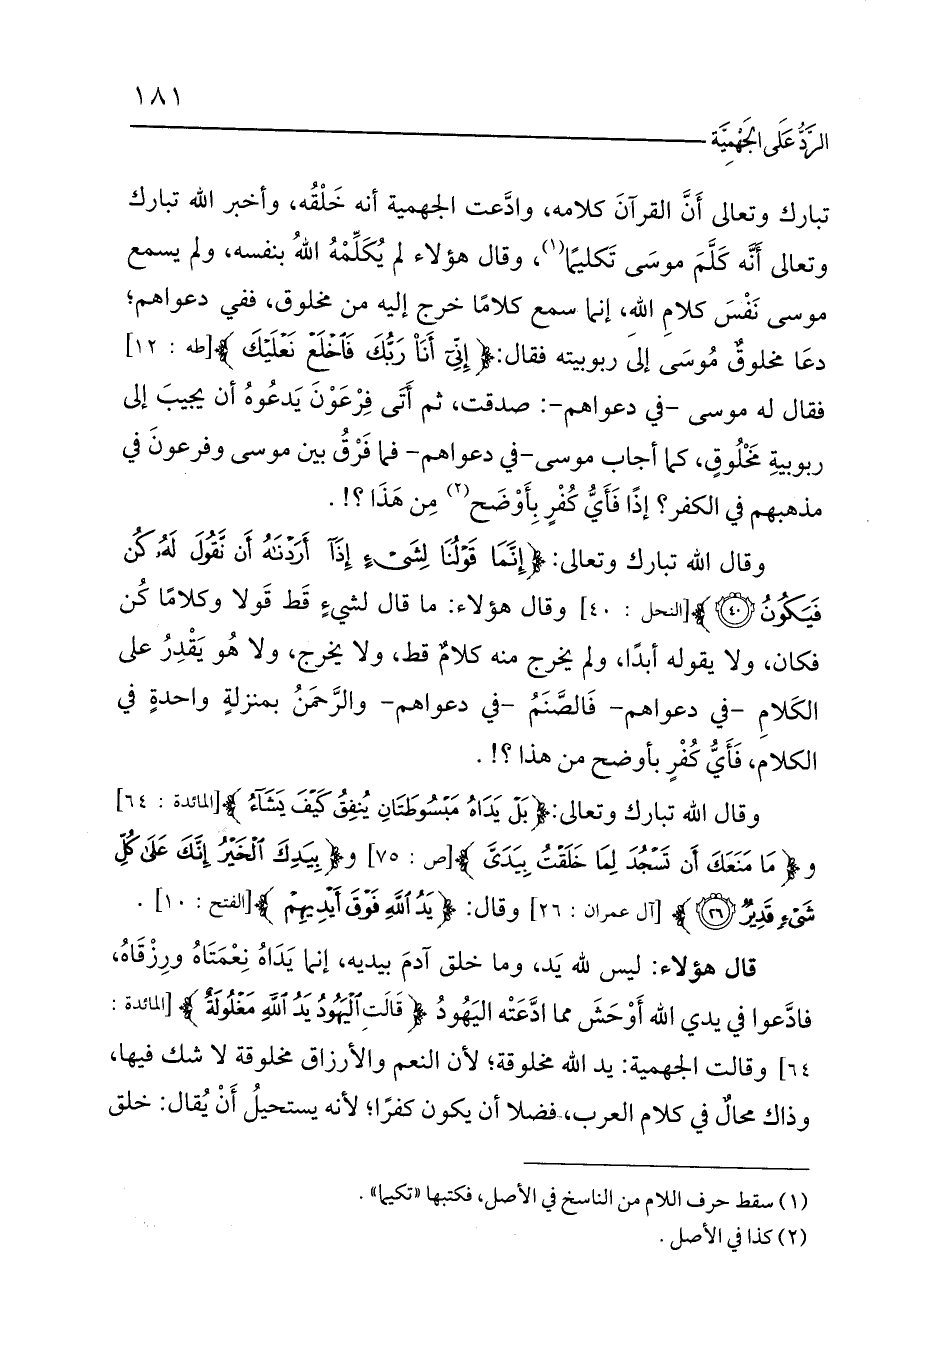 ١٨١
الرَّدُّ عَلَى الجَهْمِيَّة
تبارك وتعالى أَنَّ القرآنَ كلامه، وادَّعت الجهمية أنه خَلْقُه، وأخبر الله تبارك
وتعالى أَنَّه كَلَّمَ موسَى تَكليمًا(١)، وقال هؤلاء لم يُكَلِّمْهُ اللهُ بنفسه، ولم يسمع
موسى نَفْسَ كلامِ الله، إنما سمع كلامًا خرج إليه من مخلوق، ففي دعواهم؛
دعَا مخلوقٌ مُوسَى إلى ربوبيته فقال:﴿ إِنِّىٓ أَنَا۠ رَبُّكَ فَٱخْلَعْ نَعْلَيْكَ ﴾[طه : ١٢]
فقال له موسى -في دعواهم-: صدقت، ثم أَتَى فِرْعَوْنَ يَدعُوهُ أن يجيبَ إلى
ربوبيةِ مَخْلُوقٍ، كما أجاب موسى-في دعواهم- فما فَرْقُ بين موسى وفرعونَ في
مذهبهم في الكفر؟ إذًا فَأَيُّ كُفْرٍ بِأَوْضَح(٢) مِن هَذَا ؟! .
وقال الله تبارك وتعالى:﴿إِنَّمَا قَوْلُنَا لِشَىْءٍ إِذَآ أَرَدْنَٰهُ أَن نَّقُولَ لَهُۥ كُن
فَيَكُونُ ٤٠﴾[النحل : ٤٠] وقال هؤلاء: ما قال لشيءٍ قط قولا وكلامًا كُن
فكان، ولا يقوله أبدًا، ولم يخرج منه كلامٌ قط، ولا يخرج، ولا هُو يَقْدِرُ على
الكَلامِ -في دعواهم- فَالصَّنَمُ -في دعواهم- والرَّحمَنُ بمنزلةٍ واحدةٍ في
الكلامِ، فَأَيُّ كُفْرٍ بأوضح من هذا ؟! .
وقال الله تبارك وتعالى:﴿بَلْ يَدَاهُ مَبْسُوطَتَانِ يُنفِقُ كَيْفَ يَشَآءُ ﴾[المائدة : ٦٤]
و﴿ مَا مَنَعَكَ أَن تَسْجُدَ لِمَا خَلَقْتُ بِيَدَىَّ ﴾[ص : ٧٥] و﴿ بِيَدِكَ الْخَيْرُ إِنَّكَ عَلَىٰ كُلِّ
شَىْءٍ قَدِيرٌ ٢٦﴾ [آل عمران : ٢٦] وقال: ﴿ يَدُ ٱللَّهِ فَوْقَ أَيْدِيهِمْ ﴾[الفتح : ١٠] .
قال هؤلاء: ليس لله يَد، وما خلق آدمَ بيديه، إنما يَدَاهُ نِعْمَتَاهُ ورِزْقَاهُ،
فادَّعوا في يدي الله أَوْحَشَ مما ادَّعَتْه اليَهُودُ ﴿ قَالَتِ ٱلْيَهُودُ يَدُ ٱللَّهِ مَغْلُولَةٌ ﴾ [المائدة :
٦٤] وقالت الجهمية: يد الله مخلوقة؛ لأن النعم والأرزاق مخلوقة لا شك فيها،
وذاك محالٌ في كلام العرب، فضلا أن يكون كفرًا؛ لأنه يستحيلُ أَنْ يُقال: خلق
(١) سقط حرف اللام من الناسخ في الأصل، فكتبها «تكيما» .
(٢) كذا في الأصل .